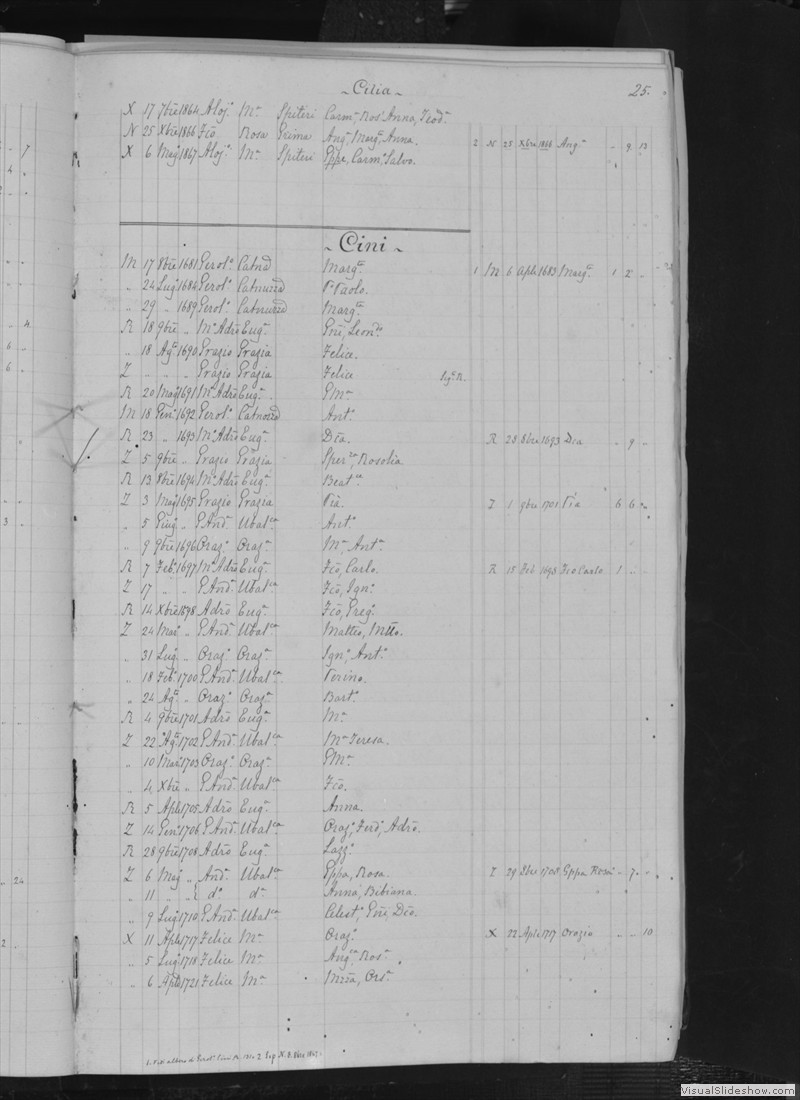 ~ Cilia ~ 25.
X 17 7bre 1864 Aloj.o M.a Spiteri Carm.a Ros.a Anna, Teod.a
N 25 Xbre 1866 Fco Rosa Grima Ang.a Marg.a Anna. 2 N 25 Xbre 1866 Ang.a " 9 13
X 6 Mag 1867 Aloj.o M.a Spiteri Gppe, Carm.a Salvo.
~ Cini ~
M 17 8bre 1681 Gerol.o Catna Marg.ta 1 M 6 Aple 1683 Marg.ta 1 2 "
" 24 Lug 1684 Gerol.o Catnuzza P. Paolo.
" 29 " 1689 Gerol.o Catnuzza Marg.ta
R 18 9bre " M.o Adrõ Eug.a Gni, Leon.do
" 18 Ag.to 1690 Grazio Grazia Felice.
Z " " Grazio Grazia Felice
R 20 Mag 1691 M.o Adrõ Eug.a GM.a
M 18 Gen.o 1692 Gerol.o Catnozza Ant.o
R 23 " 1693 M.o Adrõ Eug.a Dia. R 23 8bre 1693 Dia " 9 "
Z 5 9bre " Grazio Grazia Sper.za, Rosolia
R 13 8bre 1694 M.o Adrõ Eug.a Beat.ce
Z 3 Mag 1695 Grazio Grazia Pia. Z 1 9bre 1701 Pia 6 6 "
" 5 Giug " G. And. Ubal.ca Ant.o
" 9 9bre 1696 Oraz.o Oraz.a M.a Ant.a
R 7 Feb.o 1697 M.o Adrõ Eug.a Fco, Carlo. R 15 Feb 1698 Fco Carlo 1 " "
Z 17 " " G. And. Ubal.ca Fco, Ign.o
R 14 Xbre 1698 Adrõ Eug.a Fco, Greg.o
Z 24 Mar.o " G. And. Ubal.ca Matteo, Mtto.
" 31 Lug " Oraz.o Oraz.a Ign.o, Ant.o
" 18 Feb.o 1700 G. And. Ubal.ca Perino.
" 24 Ag.to " Oraz.o Oraz.a Bart.o
R 4 9bre 1701 Adrõ Eug.a M.a
Z 22 Ag.to 1702 G. And. Ubal.ca M.a Teresa.
" 10 Mar 1703 Oraz.o Oraz.a GM.a
" 4 Xbre " G. And. Ubal.ca Fco.
R 5 Aple 1705 Adrõ Eug.a Anna.
Z 14 Gen.o 1706 G. And. Ubal.ca Oraz.o, Ferd.o, Adrõ.
R 28 9bre 1708 Adrõ Eug.a Lazz.o
Z 6 Mag " And. Ubal.ca Gppa, Rosa. Z 29 1708 Gppa Rosa " 7 "
" 11 " " { d.o d.a Anna, Bibiana.
" 9 Lug 1710 G. And. Ubal.ca Celest.o, Gni, Dco.
X 11 Aple 1717 Felice M.a Oraz.o X 22 Aple 1717 Orazio " " 10
" 5 Lug 1718 Felice M.a Ang.ca Ros.a
" 6 Aple 1721 Felice M.a Mzia, Ors.a
VisualSlideshow.com